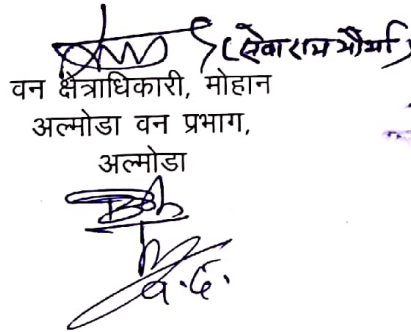 (सेवाराम मौर्या)
वन क्षेत्राधिकारी, मोहान
अल्मोडा वन प्रभाग,
अल्मोडा
व.द.